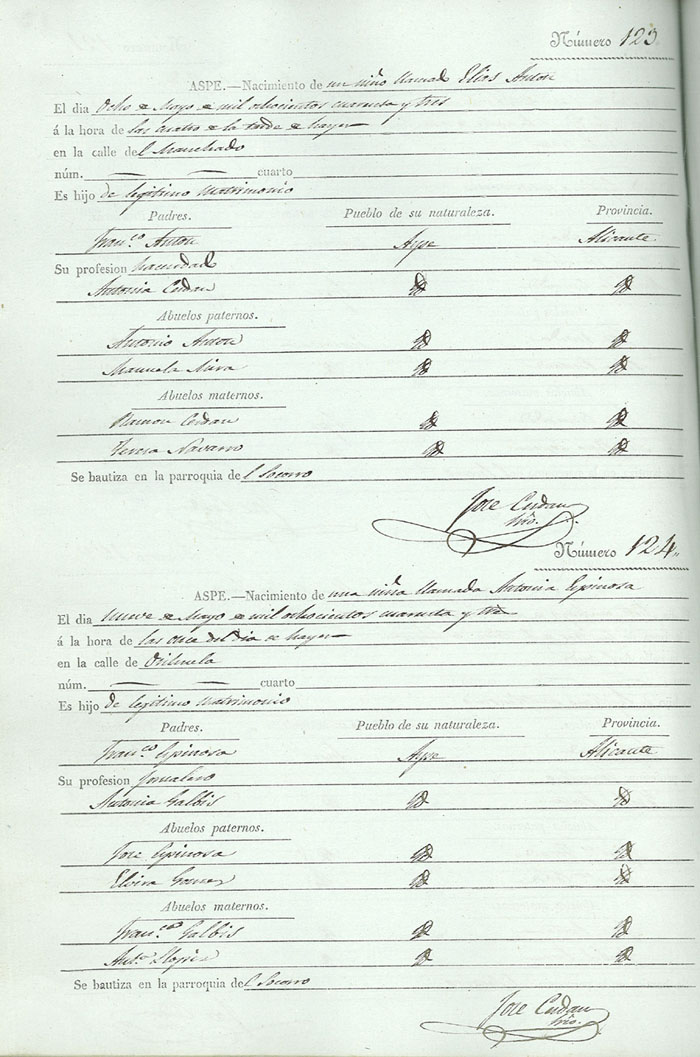 Número 123.
ASPE.—Nacimiento de un niño llamado Elias Anton
El dia Ocho de Mayo de mil ochocientos cuarenta y tres
á la hora de las cuatro de la tarde de hayer
en la calle del
núm. cuarto
Es hijo de legitimo matrimonio
Padres. Pueblo de su naturaleza. Provincia.
Franco. Anton Aspe Alicante
Su profesion
Antonia Cerdan id id
Abuelos paternos.
Antonio Anton id id
Manuela Mira id id
Abuelos maternos.
Ramon Cerdan id id
Teresa Navarro id id
Se bautiza en la parroquia del Socorro
Jose Cerdan
Srio.
Número 124.
ASPE.—Nacimiento de una niña llamada Antonia Espinosa
El dia nueve de Mayo de mil ochocientos cuarenta y tres
á la hora de las once del dia de hayer
en la calle de Orihuela
núm. cuarto
Es hijo de legitimo matrimonio
Padres. Pueblo de su naturaleza. Provincia.
Franco. Espinosa Aspe Alicante
Su profesion Jornalero
Antonia Galbis id id
Abuelos paternos.
Jose Espinosa id id
Elvira Gomez id id
Abuelos maternos.
Franco. Galbis id id
Anta. Lopez id id
Se bautiza en la parroquia del Socorro
Jose Cerdan
Srio.